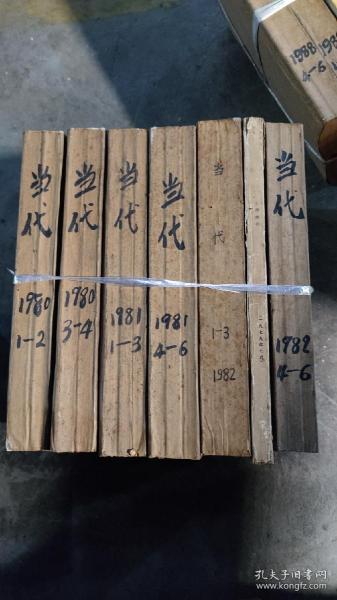 当代
1980
1-2
当代
1980
3-4
当代
1981
1-3
当代
1981
4-6
当代
1-3
1982
当代
1982
4-6
1988
4-6
孔夫子旧书网
www.kongfz.com